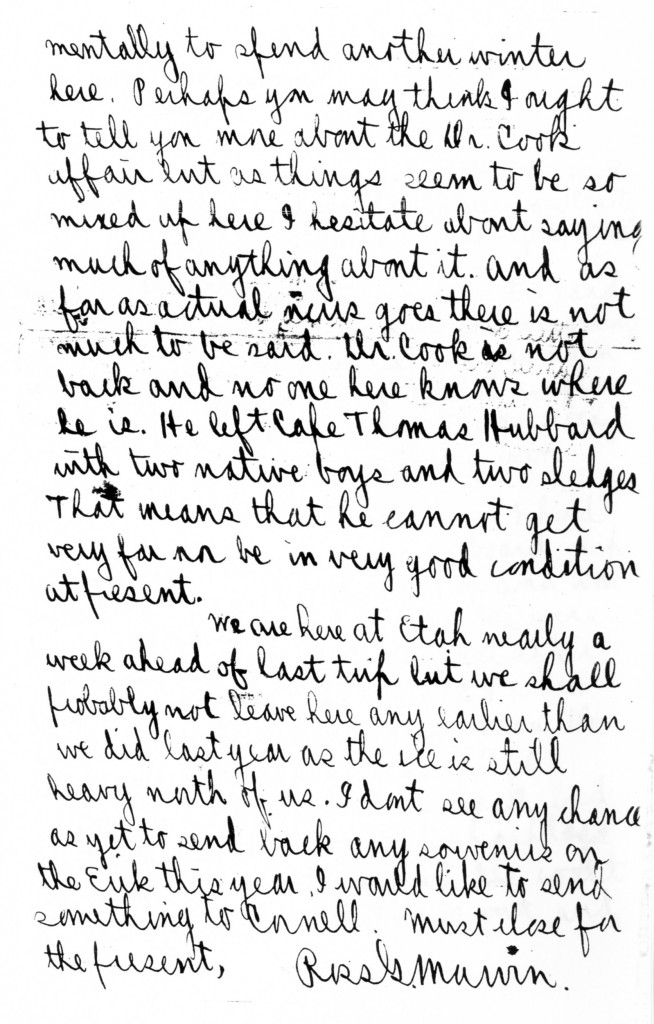 mentally to spend another winter
here. Perhaps you may think I ought
to tell you more about the Dr. Cook
affair but as things seem to be so
mixed up here I hesitate about saying
much of anything about it. and as
far as actual news goes there is not
much to be said. Dr. Cook is not
back and no one here knows where
he is. He left Cape Thomas Hubbard
with two native boys and two sledges
That means that he cannot get
very far nor be in very good condition
at present.
We are here at Etah nearly a
week ahead of last trip but we shall
probably not leave here any earlier than
we did last year as the ice is still
heavy north of us. I dont see any chance
as yet to send back any souvenirs on
the Erik this year. I would like to send
something to Cornell. Must close for
the present, Ross G. Marvin.